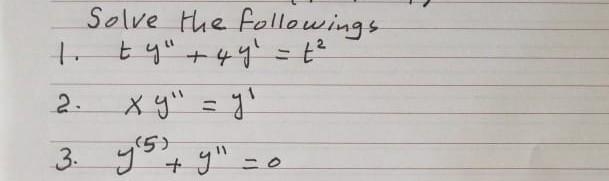 Solve the followings
1. t y" + 4 y' = t²
2. x y" = y'
3. y⁽⁵⁾ + y" = 0